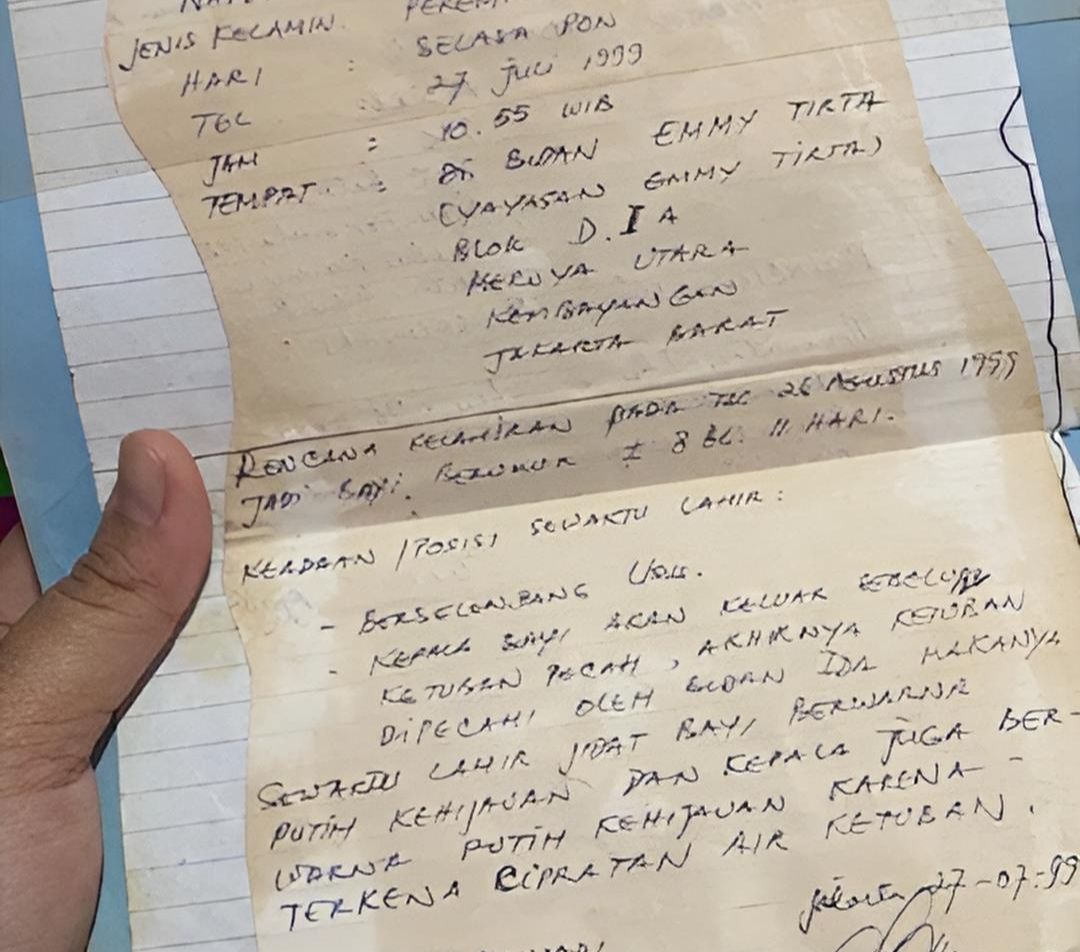 JENIS KELAMIN
HARI : SELASA PON
TGL 27 JULI 1999
JAM : 10.55 WIB
TEMPAT : DI BIDAN EMMY TIRTA
(YAYASAN EMMY TIRTA)
BLOK D.I A
MERUYA UTARA
KEMBAYANGAN
JAKARTA BARAT
RENCANA KELAHIRAN PADA TGL 26 AGUSTUS 1999
JADI BAYI BERUMUR ± 8 BL. 11 HARI.
KEADAAN / POSISI SEWAKTU LAHIR :
- BERSELONBANG USUS.
- KEPALA BAYI AKAN KELUAR SEBELUM
KETUBAN PECAH, AKHIRNYA KETUBAN
DIPECAHI OLEH BIDAN IDA MAKANYA
SEWAKTU LAHIR JIDAT BAYI BERWARNA
PUTIH KEHIJAUAN DAN KEPALA JUGA BER-
WARNA PUTIH KEHIJAUAN KARENA -
TERKENA CIPRATAN AIR KETUBAN.
Jakarta, 27-07-99